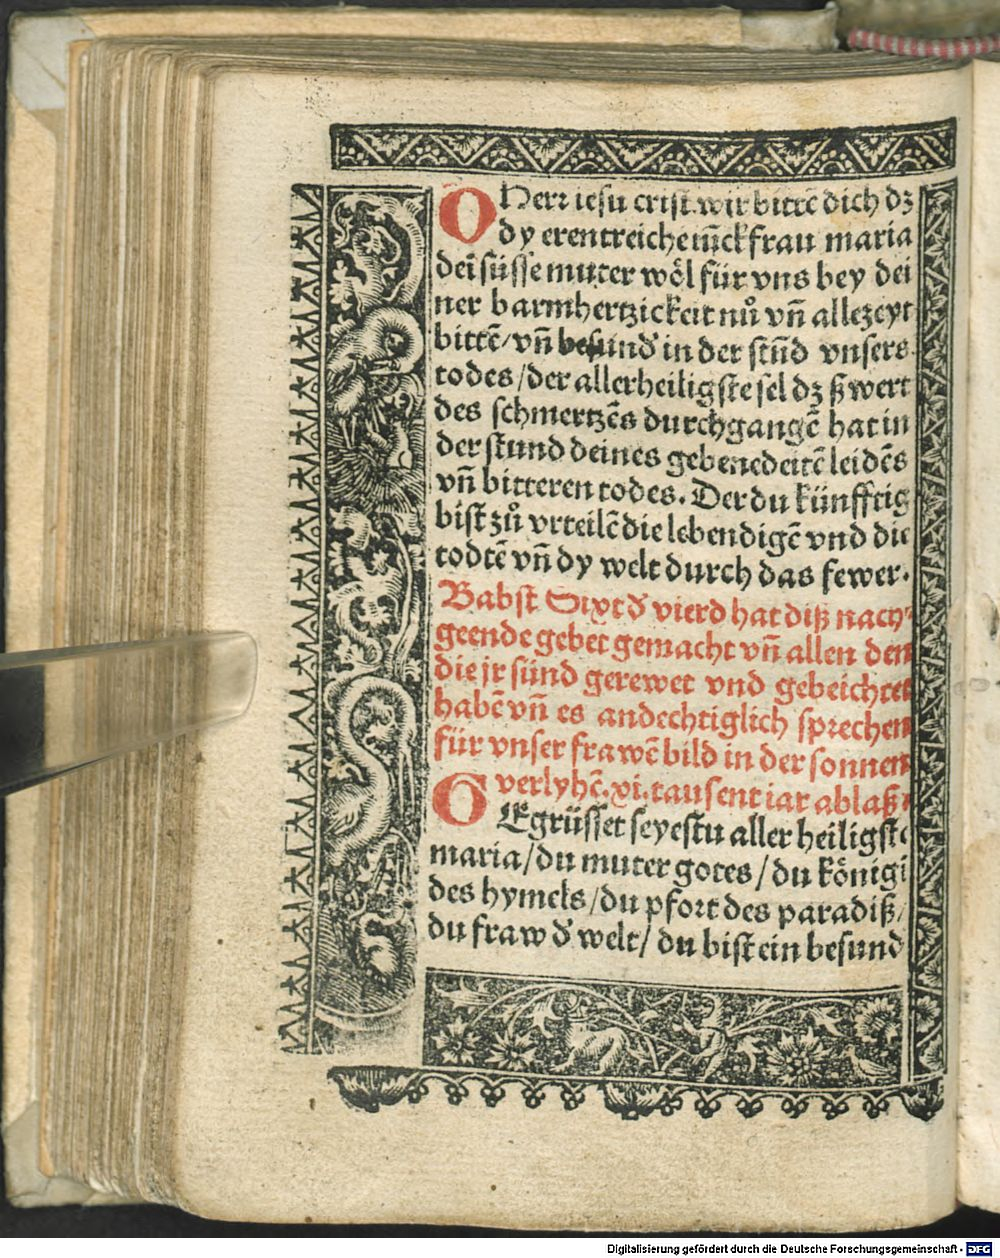 O Herꝛ iesu crist wir bittē dich dʒ
dy erentreiche iūckfrau maria
dei᷑ süsse muter wöl für vns bey dei
ner barmhertzickeit nů vn̄ allezeyt
bittē/ vn̄ besund᷑ in der stūd vnsers
todes /der allerheiligste sel dʒ ßwert
des schmertzēs durchgangē hat in
der stund deines gebenedeitē leidēs
vn̄ bitteren todes. Der du künfftig
bist zů vrteilē die lebendigē vnd die
todtē vn̄ dy welt durch das fewer.
Babst Sixt d᷑ vierd hat diß nach⸗
geende gebet gemacht vn̄ allen den
die jr sünd gerewet vnd gebeichtet
habē vn̄ es andechtiglich sprechen
für vnser frawē bild in der sonnen
verlyhē .xi. tausent iar ablaß
GEgrüsset seyestu aller heiligste
maria/ du muter gotes / du königī
des hymels /du pfoꝛt des paradiß/
du fraw d᷑ welt/ du bist ein besund
Digitalisierung gefördert durch die Deutsche Forschungsgemeinschaft - DFG